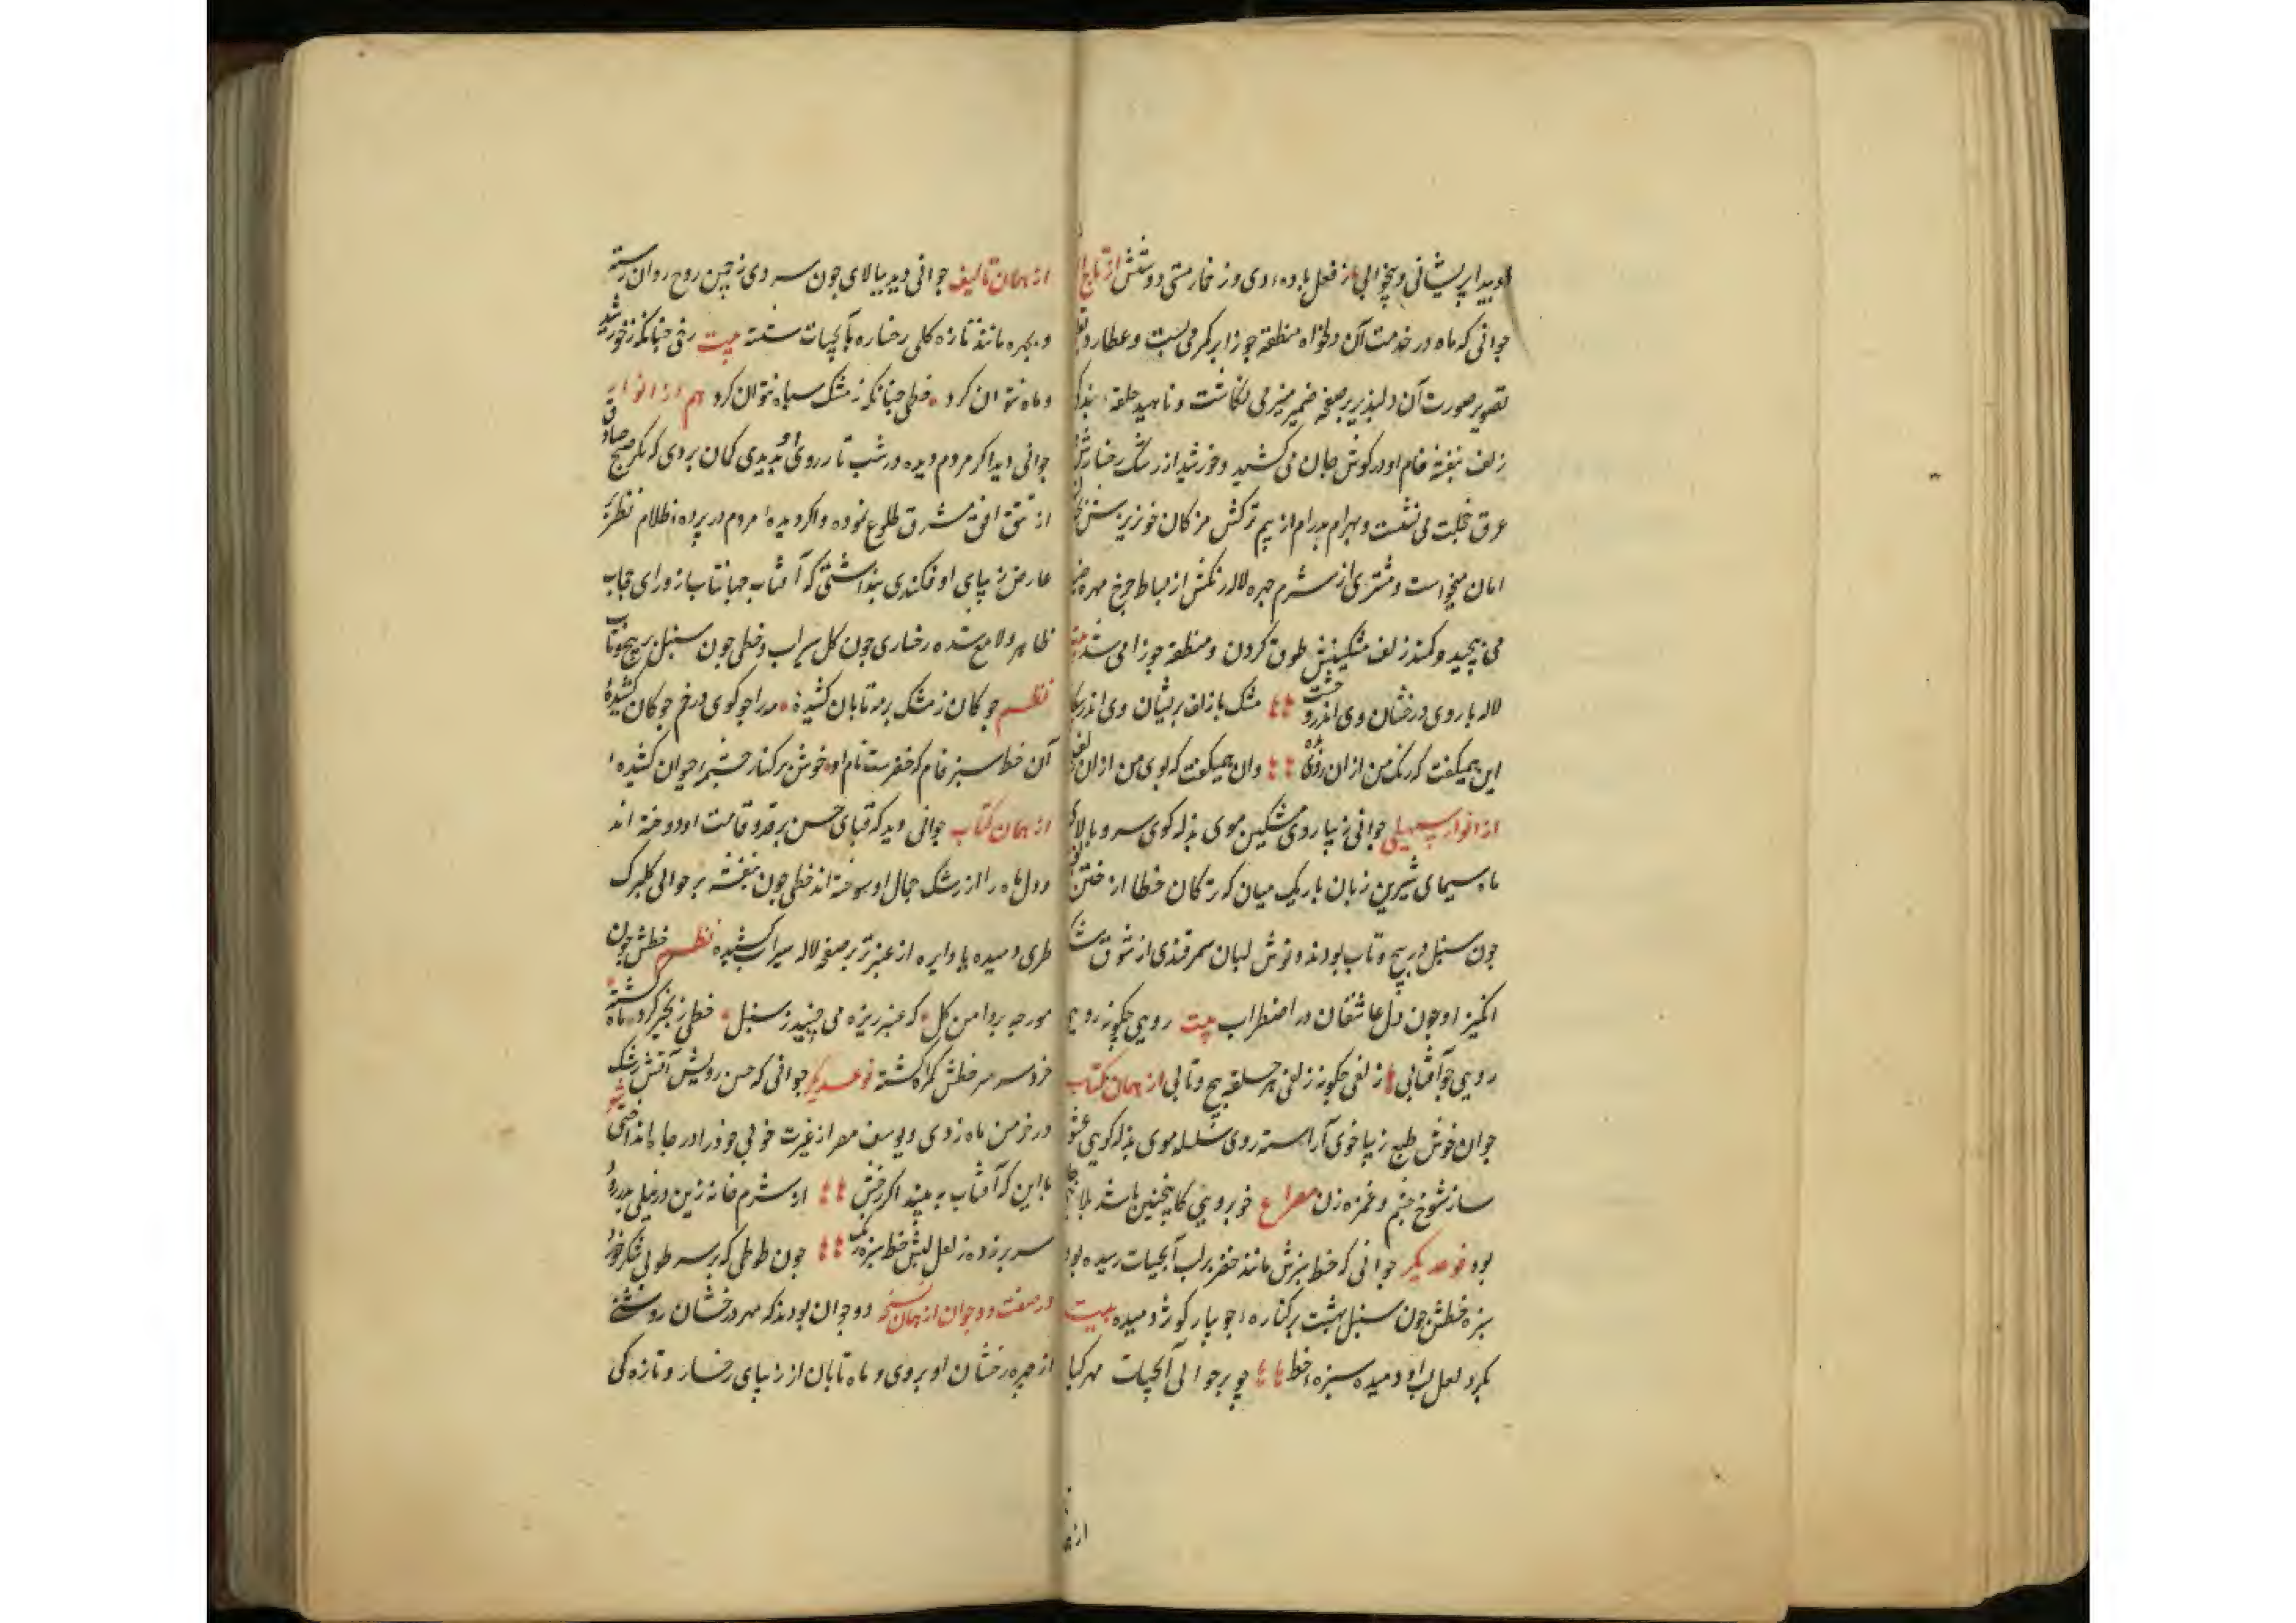 او پیدا پریشانی و بیخوابی از فعل باده دی وز خمار مستی دوشش از تاج ا
جوانی که ماه در خدمت آن دلخواه منطقهٔ جوزا بر کمر می بست و عطارد
تصویر صورت آن دلپذیر بر صفحهٔ ضمیر منیر می نگاشت و ناهید حلقه بندکی
زلف بنفشه فام او در کوش جان می کشید و خورشید از رشک رخسارش
عرق خجلت می نشست و بهرام بدرام از بیم ترکش مژکان خونریزش
امان میخواست و مشتری از شرم چهره لاله رنکش از بساط چرخ مهره
می پیچید و کمند زلف مشکینش طوق کردون و منطقه جوزا می شد
لاله با روی درخشان وی اندر وحشت مشک با زلف پریشان وی اندر
این همیکفت که رنک من از ان روی وان همیکفت که بوی من از ان
از انوار سهیلی جوانی زیبا روی مشکین موی بذله کوی سرو بالای
ماه سیمای شیرین زبان باریک میان که ترکان خطا از ختن
چون سنبل در پیچ و تاب بودند و نوش لبان سمرقندی از شوق
انکیز او چون دل عاشقان در اضطراب بیت رویی چکونه رویی
رویی چو آفتابی زلفی چکونه زلفی هر حلقه پیچ و تابی از همان کتاب
جوان خوش طبع زیبا خوی آراسته روی سلسله موی بذله کویی
ساز شوخ چشم و غمزه زن مصراع خوبرویی کاینچنین باشد بلا
بود نوعدیکر جوانی که خط سبزش مانند خضر بر لب آبحیات رسیده بود
سبزه خطش چون سنبل بهشت بر کناره جویبار کوثر دمیده بیت
بکرد لعل لب او دمیده سبزه خط چو بر حوالی آبحیات مهر کیا
از همان تالیف جوانی دید ببالای چون سروی ز چمن روح روان رسته
و بچهره مانند تازه کلی رخساره بآبحیات شسته بیت رخی چنانکه ز خورشید
و ماه نتوان کرد خطی چنانکه ز مشک سیاه نتوان کرد هم از انوار
جوانی دید اکر مردم دیده در شب تار روی او بدیدی کمان بردی که مکر صبح صادق
از تتق افق مشرق طلوع نموده و اکر دیدهٔ مردم در پردهٔ ظلام نظر بر
عارض زیبای او فکندی پنداشتی که آفتاب جهانتاب از ورای حجاب
ظاهر و لامع شده رخساری چون کل سیراب و خطی چون سنبل پر پیچ و تاب
نظم چوکان ز مشک بر مه تابان کشیدهٔ مه را چو کوی در خم چوکان کشیدهٔ
آن خط سبز فام که خضرست نام او خوش بر کنار چشمه حیوان کشیدهٔ
از همان کتاب جوانی دید که قبای حسن بر قد و قامت او دوخته اند
و دل ماه را از رشک جمال او سوخته اند خطی چون بنفشه بر حوالی کلبرک
طری دمیده یا دایره از عنبر تر بر صفحه لاله سیراب کشیده نظم خطش چون
مورچه بر دامن کل که عنبر ریزه می چیند ز سنبل خطی زنجیر کرد ماه کشته
خرد سر بر خطش کمراه کشته نوعدیکر جوانی که حسن رویش آتش رشک
در خرمن ماه زدی و یوسف مصر از غیرت خوبی خود را در چاه انداختی شعر
با این که آفتاب به بیند اکر رخش از شرم خانه زین در نیلی
سر بر زده ز لعل لبش خط سبز رنک چون طوطی که بر سر طوبی شکر خورد
در صفت دو جوان از همان نسخه دو جوان بودند که مهر درخشان روشنی
از چهره رخشان او بردی و ماه تابان از زیبای رخسار و تازه کی